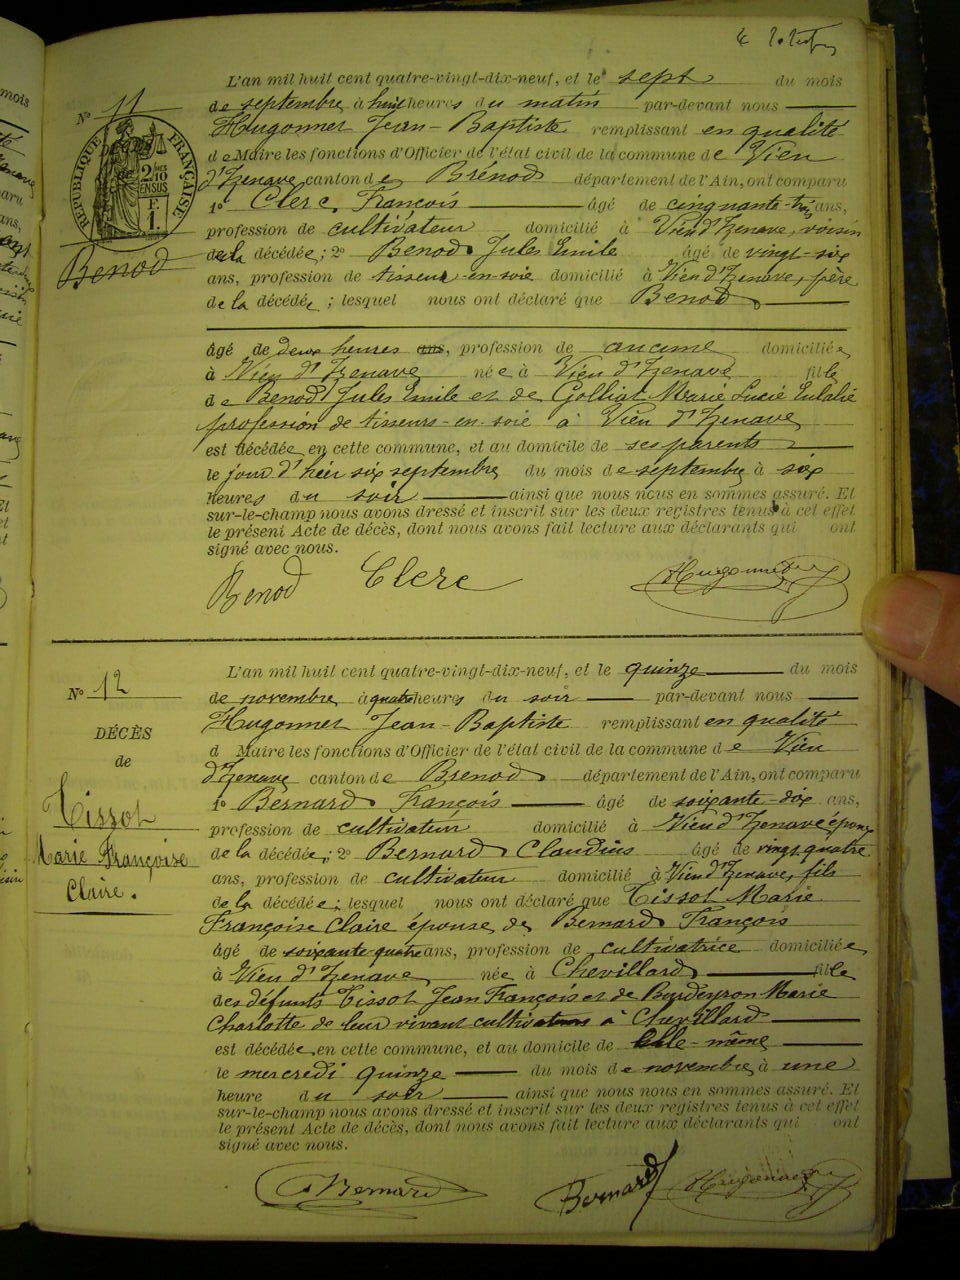 L'an mil huit cent quatre-vingt-dix-neuf, et le sept du mois
de septembre à huit heures du matin par-devant nous
Hugonnet Jean-Baptiste remplissant en qualité
de Maire les fonctions d'Officier de l'état civil de la commune de Vieu
d'Izenave canton de Brénod département de l'Ain, ont comparu
1° Clerc François âgé de cinquante-trois ans,
profession de cultivateur domicilié à Vieu d'Izenave, voisin
de la décédée; 2° Benod Jules Emile âgé de vingt-six
ans, profession de tisseur-en-soie domicilié à Vieu d'Izenave, père
de la décédée; lesquel nous ont déclaré que Benod
âgé de deux heures ans, profession de aucune domiciliée
à Vieu d'Izenave née à Vieu d'Izenave fille
de Benod Jules Emile et de Golliat Marie Lucie Eulalie
profession de tisseurs-en-soie à Vieu d'Izenave
est décédée en cette commune, et au domicile de ses parents
le jour d'hier six septembre du mois de septembre à six
heures du soir ainsi que nous nous en sommes assuré. Et
sur-le-champ nous avons dressé et inscrit sur les deux registres tenus à cet effet
le présent Acte de décès, dont nous avons fait lecture aux déclarants qui ont
signé avec nous.
Benod Clerc Hugonnet
N° 11
RÉPUBLIQUE FRANÇAISE
2/10 EN SUS
F. 1.
Benod
L'an mil huit cent quatre-vingt-dix-neuf, et le quinze du mois
de novembre à quatre heures du soir par-devant nous
Hugonnet Jean-Baptiste remplissant en qualité
d Maire les fonctions d'Officier de l'état civil de la commune de Vieu
d'Izenave canton de Brenod département de l'Ain, ont comparu
1° Bernard François âgé de soixante-dix ans,
profession de cultivateur domicilié à Vieu d'Izenave époux
de la décédée; 2° Bernard Claudius âgé de vingt-quatre
ans, profession de cultivateur domicilié à Vieu d'Izenave, fils
de la décédée; lesquel nous ont déclaré que Tissot Marie
Françoise Claire épouse de Bernard François
âgé de soixante-quatre ans, profession de cultivatrice domiciliée
à Vieu d'Izenave née à Chevillard fille
des défunts Tissot Jean François et de Burdeyron Marie
Charlotte de leur vivant cultivateurs à Chevillard
est décédée en cette commune, et au domicile de elle-même
le mercredi quinze du mois de novembre à une
heure du soir ainsi que nous nous en sommes assuré. Et
sur-le-champ nous avons dressé et inscrit sur les deux registres tenus à cet effet
le présent Acte de décès, dont nous avons fait lecture aux déclarants qui ont
signé avec nous.
Bernard Bernard Hugonnet
N° 12
DÉCÈS
de
Tissot
Marie Françoise
Claire.